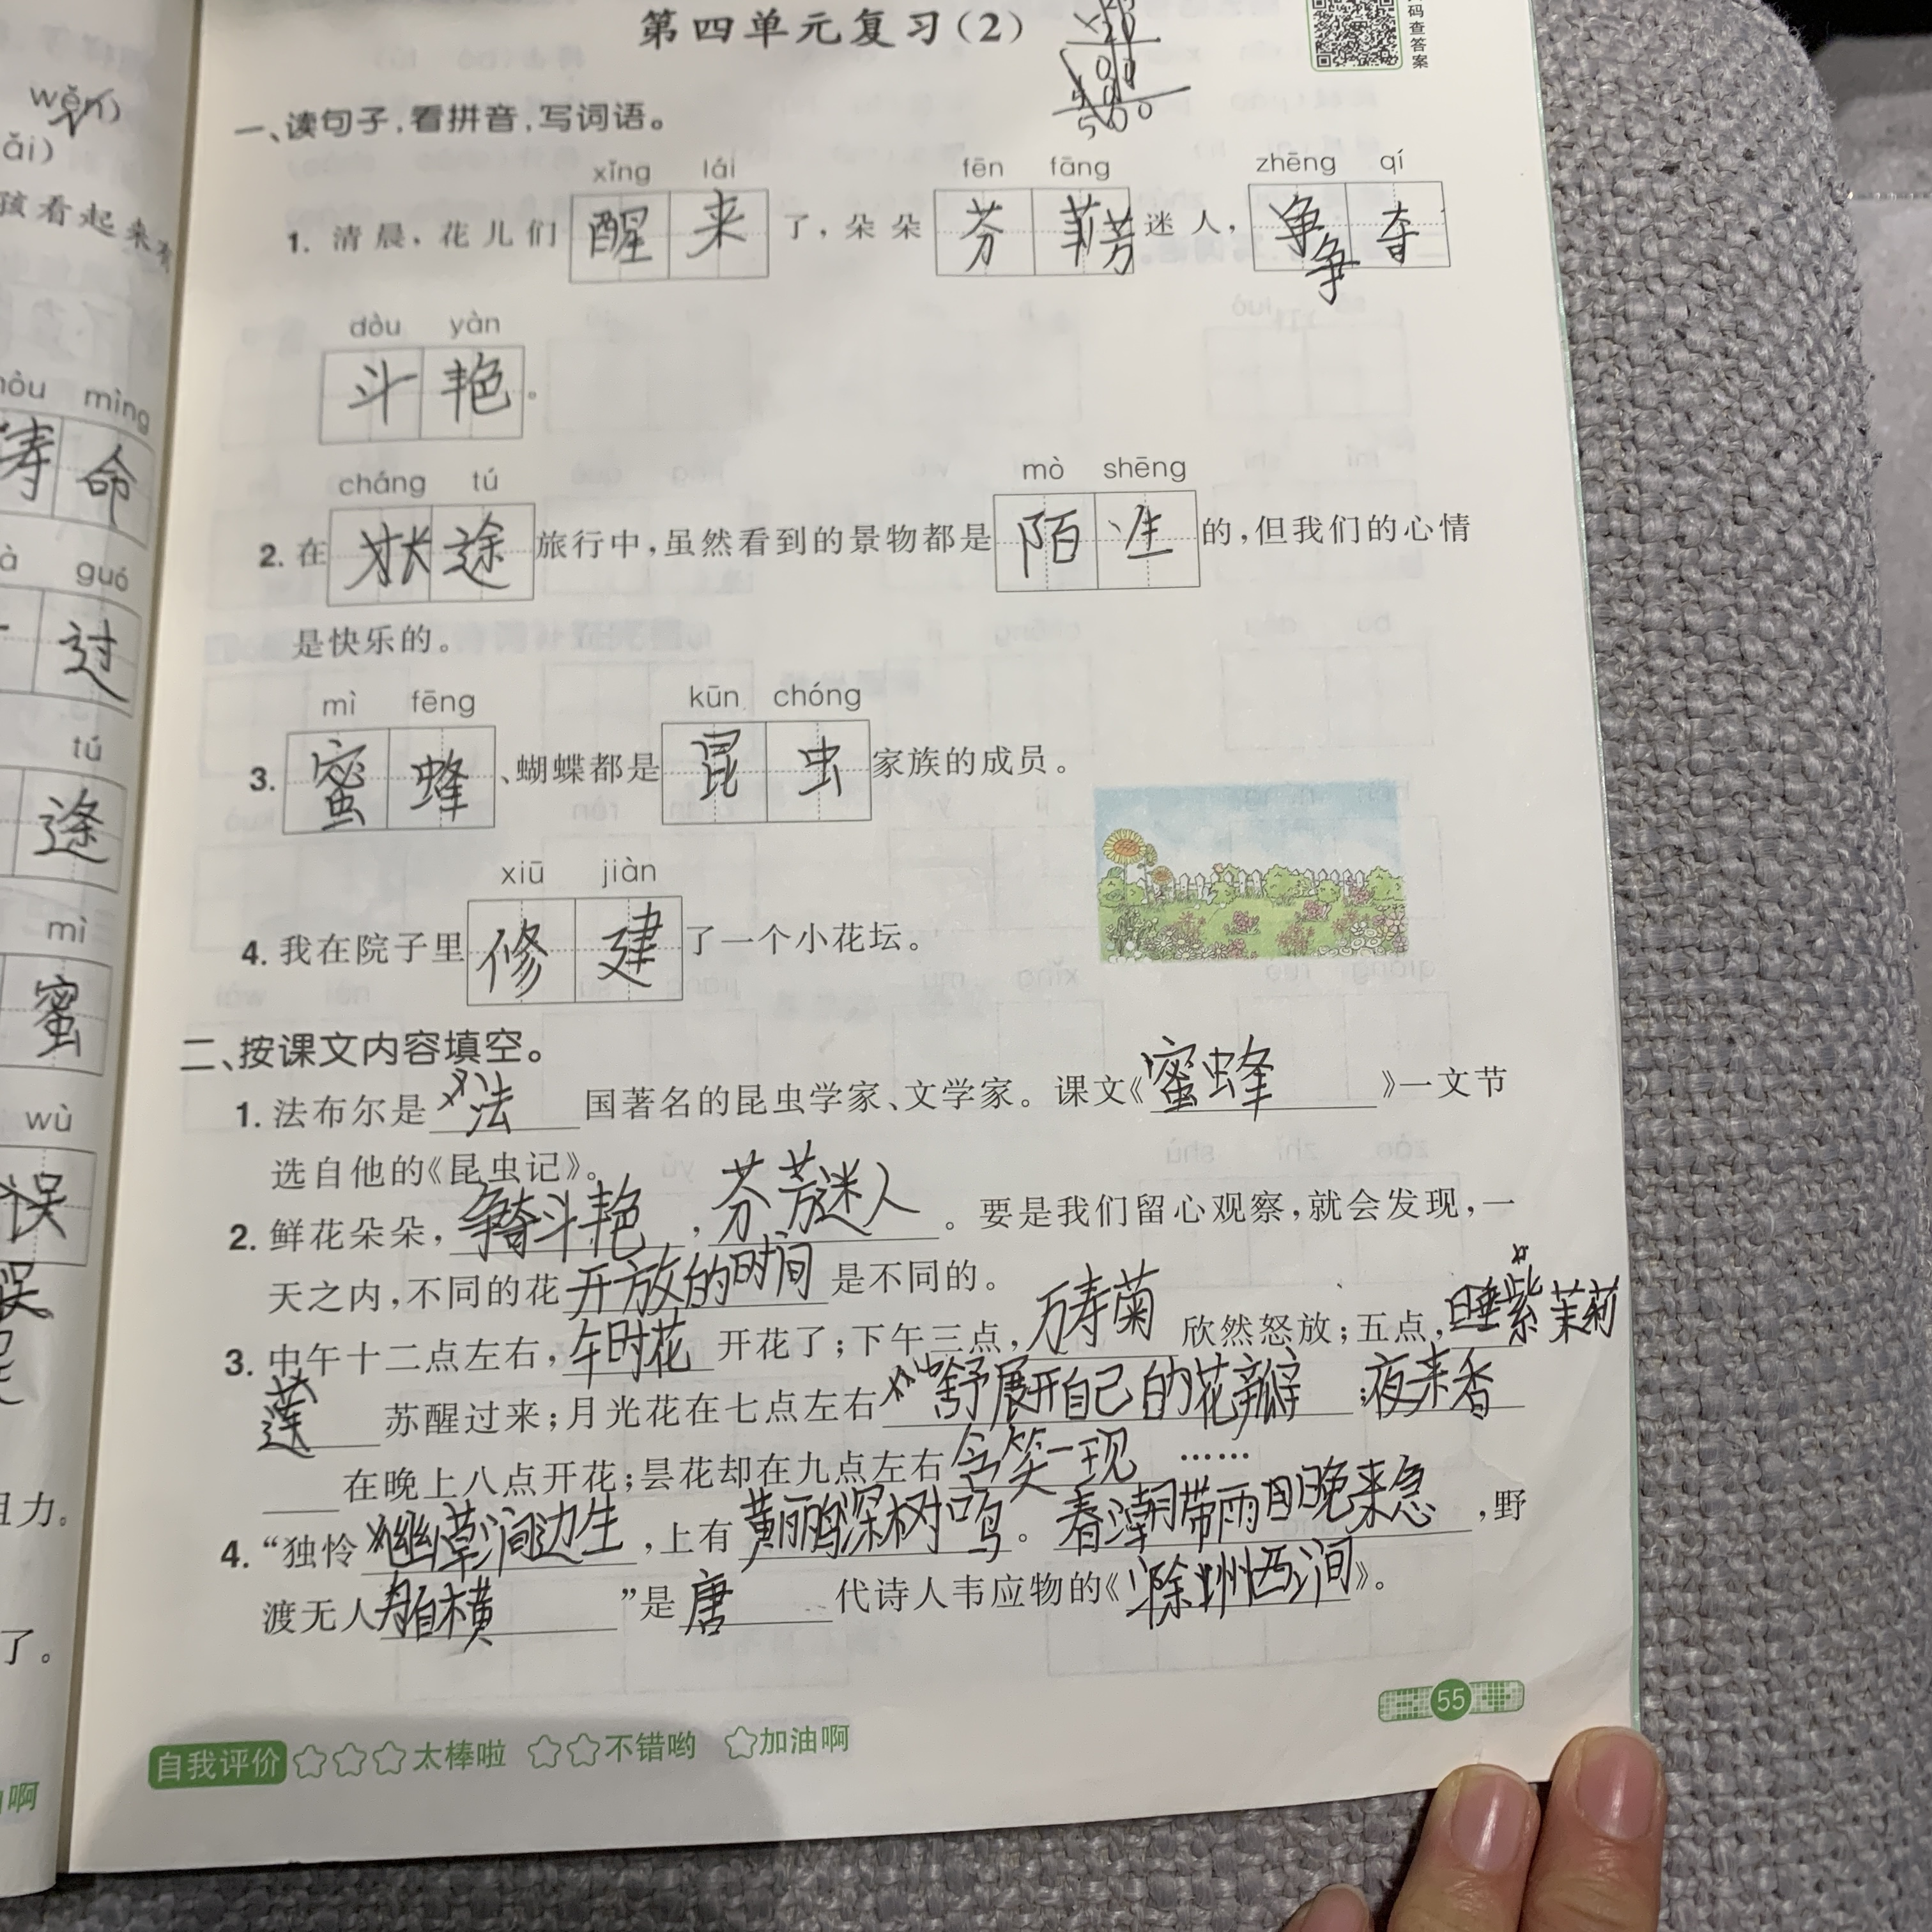 第四单元复习(2)
码查答案
一、读句子,看拼音,写词语。
xǐng lái fēn fāng zhēng qí
1. 清晨,花儿们醒来了,朵朵芬芳迷人,争夺
dòu yàn
斗艳。
cháng tú mò shēng
2. 在途旅行中,虽然看到的景物都是陌生的,但我们的心情
是快乐的。
mì fēng kūn chóng
3. 蜜蜂、蝴蝶都是昆虫家族的成员。
xiū jiàn
4. 我在院子里修建了一个小花坛。
二、按课文内容填空。
1. 法布尔是法国著名的昆虫学家、文学家。课文《蜜蜂》一文节
选自他的《昆虫记》。
2. 鲜花朵朵,争奇斗艳,芬芳迷人。要是我们留心观察,就会发现,一
天之内,不同的花开放的时间是不同的。
3. 中午十二点左右,午时花开花了;下午三点,万寿菊欣然怒放;五点,睡紫茉莉
莲苏醒过来;月光花在七点左右舒展开自己的花瓣;夜来香
在晚上八点开花;昙花却在九点左右含笑一现……
4. “独怜幽草涧边生,上有黄丽鹂深树鸣。春潮带雨晚来急,野
渡无人舟自横”是唐代诗人韦应物的《滁州西涧》。
55
自我评价 太棒啦 不错哟 加油啊
wěn)
ǎi)
孩看起来
mìng
寿命
guó
过
tú
途
mì
蜜
wù
误
误
力。
了。
啊
×20
500